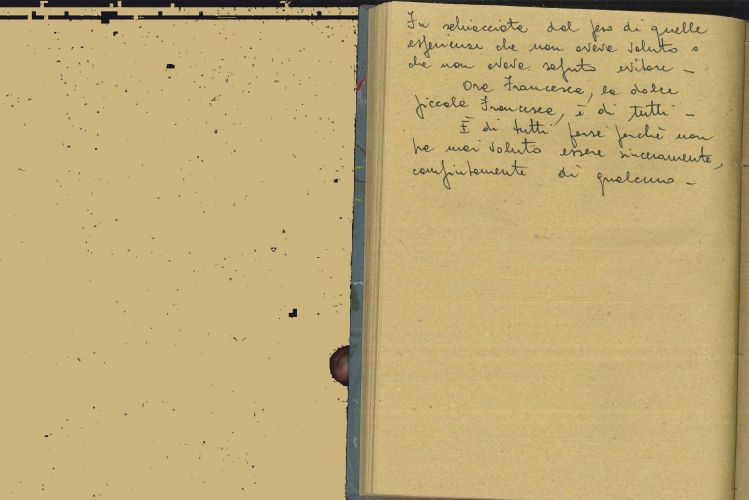 Fu schiacciata dal peso di quelle
esperienze che non aveva voluto o
che non aveva saputo evitare –
Ora Francesca, la dolce
piccola Francesca, è di tutti –
È di tutti forse perchè non
ha mai voluto essere sinceramente,
compiutamente di qualcuno –